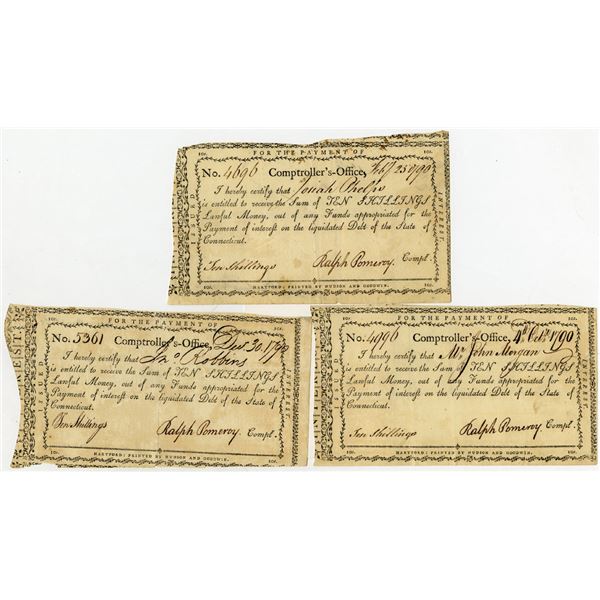 10s. FOR THE PAYMENT OF 10s.
ISSUED
No. 4696 Comptroller's-Office, 25 1790
I hereby certify that Jonah Phelps
is entitled to receive the Sum of TEN SHILLINGS
Lawful Money, out of any Funds appropriated for the
Payment of interest on the liquidated Debt of the State of
Connecticut.
Ten Shillings Ralph Pomeroy. Compt.
INTEREST.
10s. HARTFORD: PRINTED BY HUDSON AND GOODWIN. 10s.
EST.
10s. FOR THE PAYMENT OF
ISSUED
No. 5361 Comptroller's-Office, 30. 1790
I hereby certify that Jno Robbins
is entitled to receive the Sum of TEN SHILLINGS
Lawful Money, out of any Funds appropriated for the
Payment of interest on the liquidated Debt of the State of
Connecticut.
Ten Shillings Ralph Pomeroy. Compt.
INTEREST.
10s. HARTFORD: PRINTED BY HUDSON AND GOODWIN. 10s.
10s. FOR THE PAYMENT OF 10s.
ISSUED
No. 4096 Comptroller's-Office, 1790
I hereby certify that Mr John Morgan
is entitled to receive the Sum of TEN SHILLINGS
Lawful Money, out of any Funds appropriated for the
Payment of interest on the liquidated Debt of the State of
Connecticut.
Ten Shillings Ralph Pomeroy. Compt.
INTEREST.
10s. HARTFORD: PRINTED BY HUDSON AND GOODWIN. 10s.